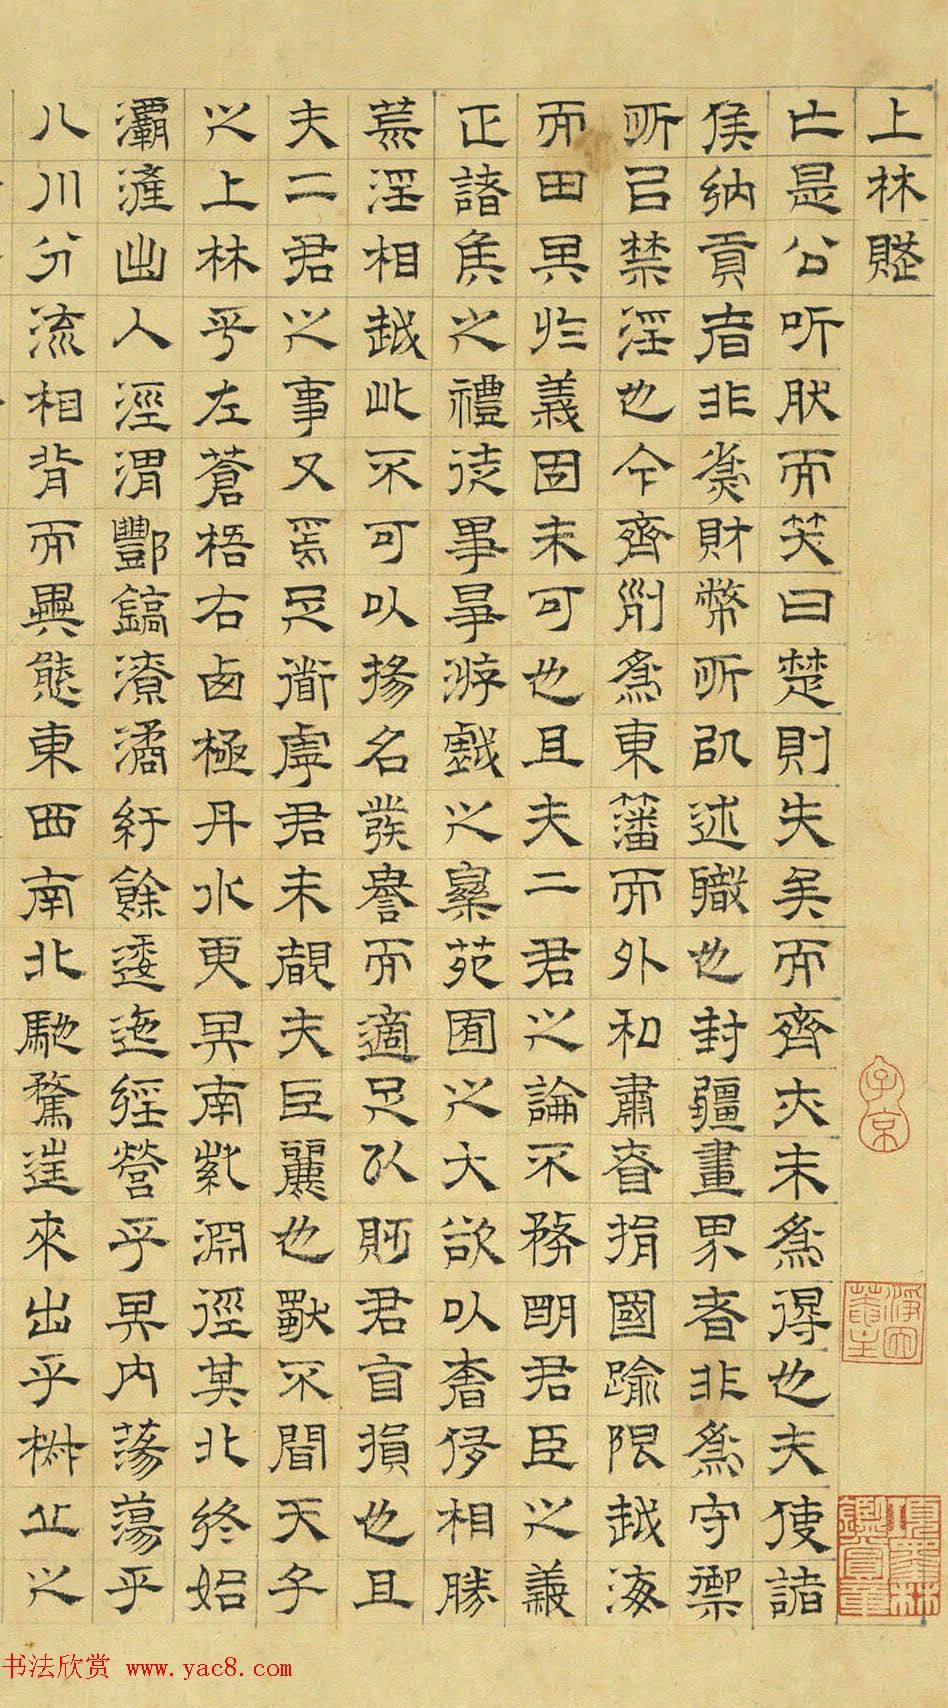 上林賦
亡是公听肰而笑曰楚則失矣而齊亦未爲得也夫使諸
侯納貢者非爲財幣所㠯述職也封疆畫界者非爲守禦
所㠯禁淫也今齊列爲東藩而外和肅眘捐國踰限越海
而田其於義固未可也且夫二君之論不務明君臣之義
正諸侯之禮徒事爭游戲之樂苑囿之大欲以奢侈相勝
荒淫相越此不可以揚名發譽而適足以貶君自損也且
夫二君之事又焉足道虖君未覩夫巨麗也獨不聞天子
之上林乎左蒼梧右西極丹水更其南紫淵徑其北終始
灞滻出入涇渭酆鎬潦潏紆餘逶迤經營乎其內蕩蕩乎
八川分流相背而異態東西南北馳騖往來出乎椒丘之
子京
书法欣赏 www.yac8.com